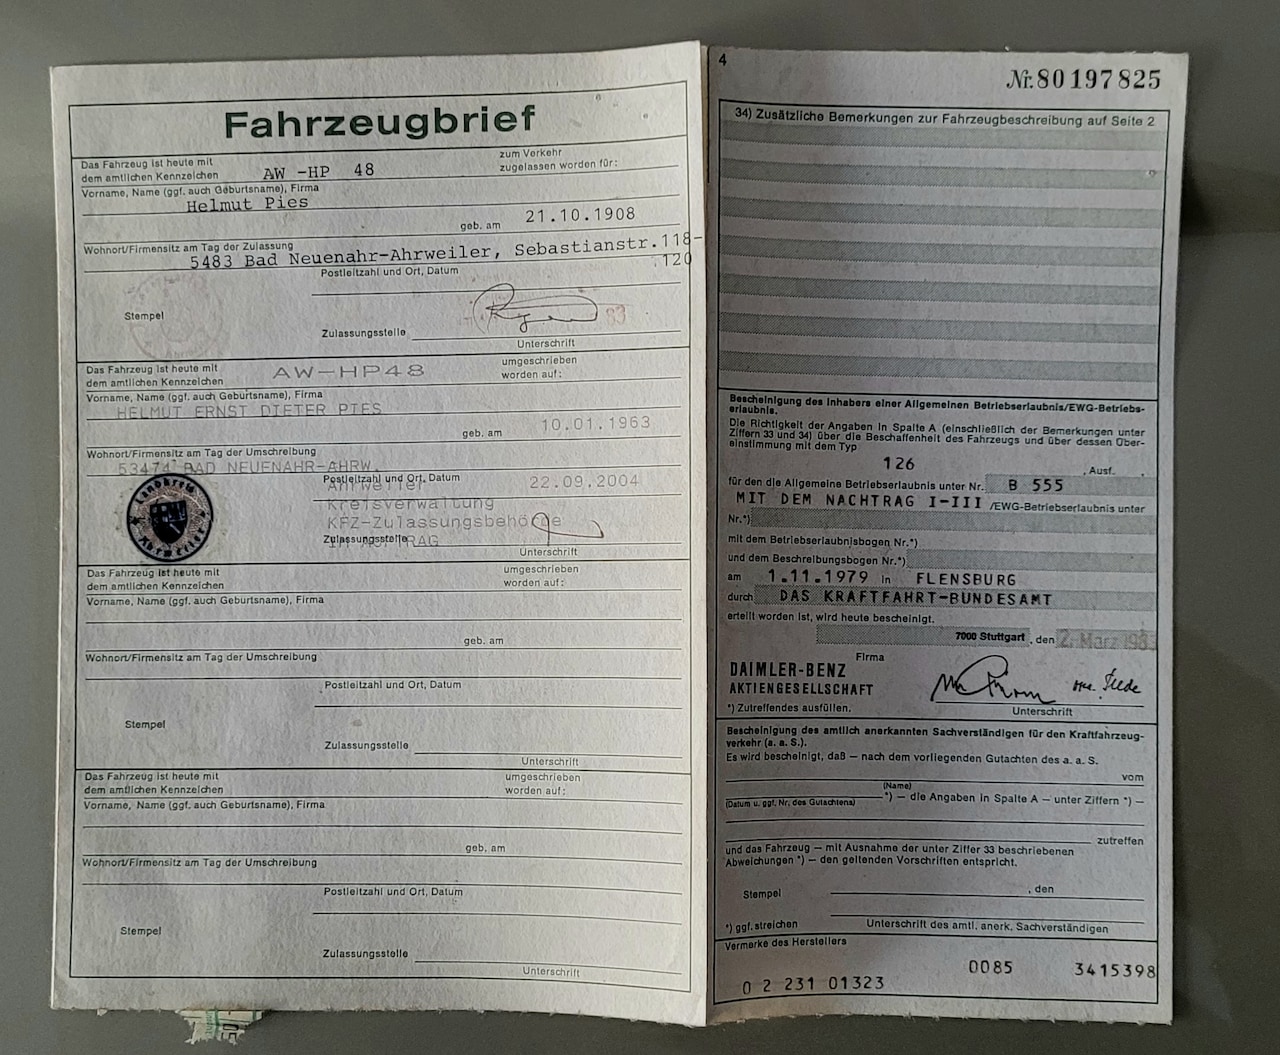 Fahrzeugbrief
Das Fahrzeug ist heute mit
dem amtlichen Kennzeichen AW -HP 48
zum Verkehr
zugelassen worden für:
Vorname, Name (ggf. auch Geburtsname), Firma
Helmut Pies
geb. am 21.10.1908
Wohnort/Firmensitz am Tag der Zulassung
5483 Bad Neuenahr-Ahrweiler, Sebastianstr.118-
120
Postleitzahl und Ort, Datum
Stempel
83
Zulassungsstelle
Unterschrift
Das Fahrzeug ist heute mit
dem amtlichen Kennzeichen AW-HP48
umgeschrieben
worden auf:
Vorname, Name (ggf. auch Geburtsname), Firma
HELMUT ERNST DIETER PIES
geb. am 10.01.1963
Wohnort/Firmensitz am Tag der Umschreibung
53474 BAD NEUENAHR-AHRW.
Postleitzahl und Ort, Datum
Ahrweiler 22.09.2004
Kreisverwaltung
KFZ-Zulassungsbehörde
Zulassungsstelle
IM AUFTRAG
Unterschrift
Landkreis
Ahrweiler
Das Fahrzeug ist heute mit
dem amtlichen Kennzeichen
umgeschrieben
worden auf:
Vorname, Name (ggf. auch Geburtsname), Firma
geb. am
Wohnort/Firmensitz am Tag der Umschreibung
Postleitzahl und Ort, Datum
Stempel
Zulassungsstelle
Unterschrift
Das Fahrzeug ist heute mit
dem amtlichen Kennzeichen
umgeschrieben
worden auf:
Vorname, Name (ggf. auch Geburtsname), Firma
geb. am
Wohnort/Firmensitz am Tag der Umschreibung
Postleitzahl und Ort, Datum
Stempel
Zulassungsstelle
Unterschrift
4
Nr. 80197825
34) Zusätzliche Bemerkungen zur Fahrzeugbeschreibung auf Seite 2
Bescheinigung des Inhabers einer Allgemeinen Betriebserlaubnis/EWG-Betriebs-
erlaubnis.
Die Richtigkeit der Angaben in Spalte A (einschließlich der Bemerkungen unter
Ziffern 33 und 34) über die Beschaffenheit des Fahrzeugs und über dessen Über-
einstimmung mit dem Typ
126 , Ausf.
für den die Allgemeine Betriebserlaubnis unter Nr. B 555
MIT DEM NACHTRAG I-III /EWG-Betriebserlaubnis unter
Nr.*)
mit dem Betriebserlaubnisbogen Nr.*)
und dem Beschreibungsbogen Nr.*)
am 1.11.1979 in FLENSBURG
durch DAS KRAFTFAHRT-BUNDESAMT
erteilt worden ist, wird heute bescheinigt.
7000 Stuttgart , den 2. März 1983
Firma
DAIMLER-BENZ
AKTIENGESELLSCHAFT
*) Zutreffendes ausfüllen.
Unterschrift
Bescheinigung des amtlich anerkannten Sachverständigen für den Kraftfahrzeug-
verkehr (a. a. S.).
Es wird bescheinigt, daß — nach dem vorliegenden Gutachten des a. a. S.
vom
(Name)
(Datum u. ggf. Nr. des Gutachtens) *) — die Angaben in Spalte A — unter Ziffern *) —
zutreffen
und das Fahrzeug — mit Ausnahme der unter Ziffer 33 beschriebenen
Abweichungen *) — den geltenden Vorschriften entspricht.
Stempel , den
*) ggf. streichen
Unterschrift des amtl. anerk. Sachverständigen
Vermerke des Herstellers
0 2 231 01323 0085 3415398